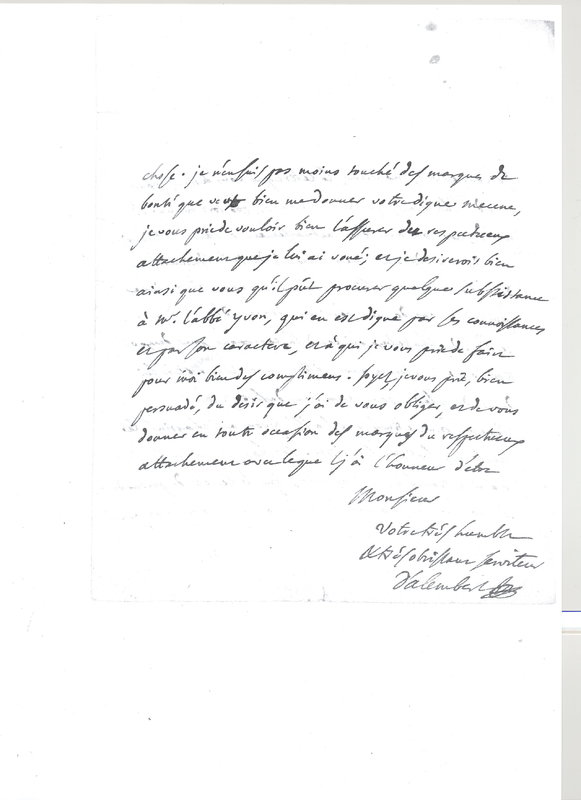 chose. je n'en suis pas moins touché des marques de
bonté que veut bien me donner votre digne mecene,
je vous prie de vouloir bien l'assurer du respectueux
attachement que je lui ai voué; et je desirerois bien
ainsi que vous qu'il pût procurer quelque subsistance
à Mr. l'abbé Yvon, qui en est digne par ses connoissances
et par son caractere, et à qui je vous prie de faire
pour moi bien des complimens. soyez, je vous prie, bien
persuadé, du désir que j'ai de vous obliger, et de vous
donner en toute occasion des marques du respectueux
attachement avec lequel j'ai l'honneur d'être
Monsieur
Votre très humble
& très obéissant serviteur
D'alembert